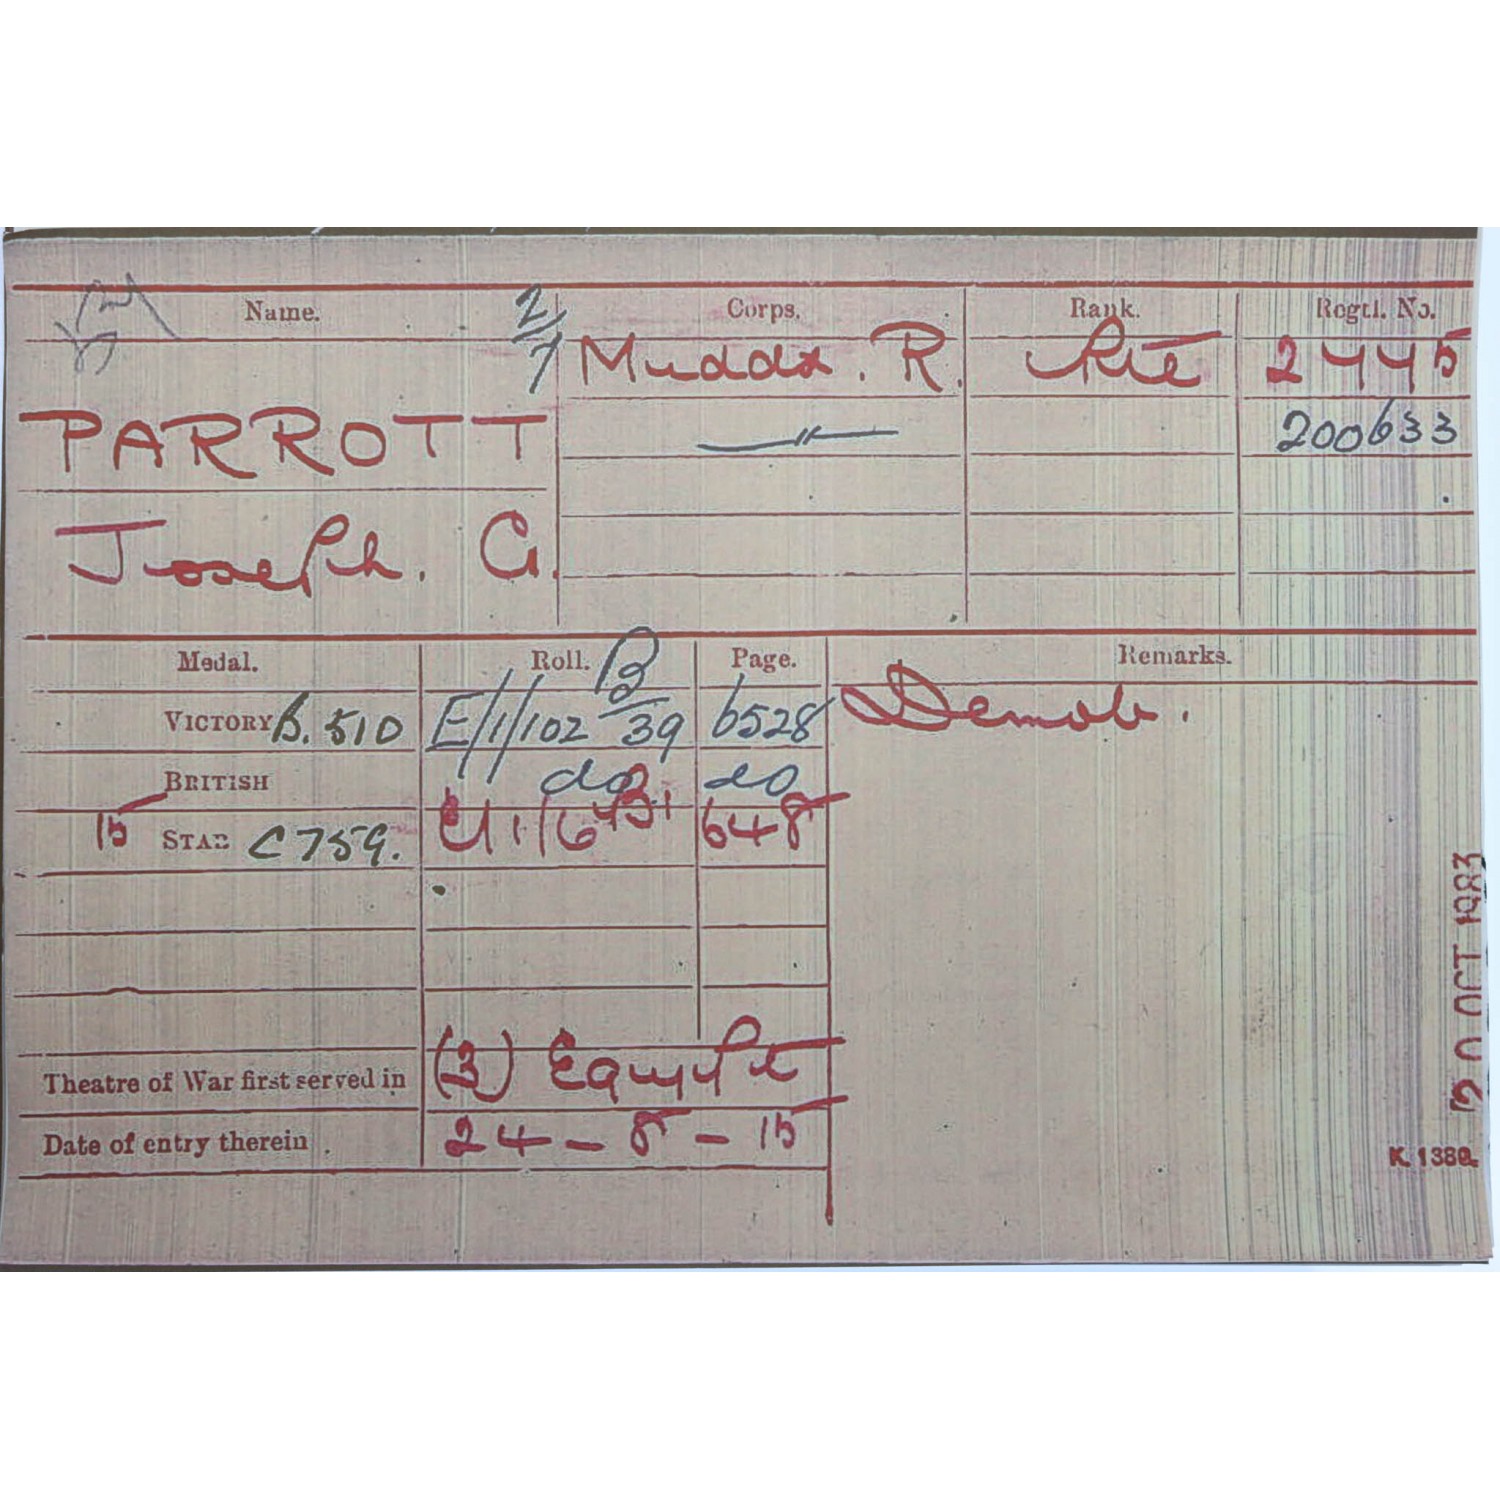 Name. Corps. Rank. Regtl. No.
2/7 Middx. R. Pte 2445
PARROTT 200633
Joseph. G.
Medal. Roll. Page. Remarks.
VICTORY B. 510 E/1/102 B/39 6528 Demob.
BRITISH do do
15 STAR C759. 648
Theatre of War first served in (3) Egypt
Date of entry therein 24-8-15
20 OCT 1983
K. 1380.